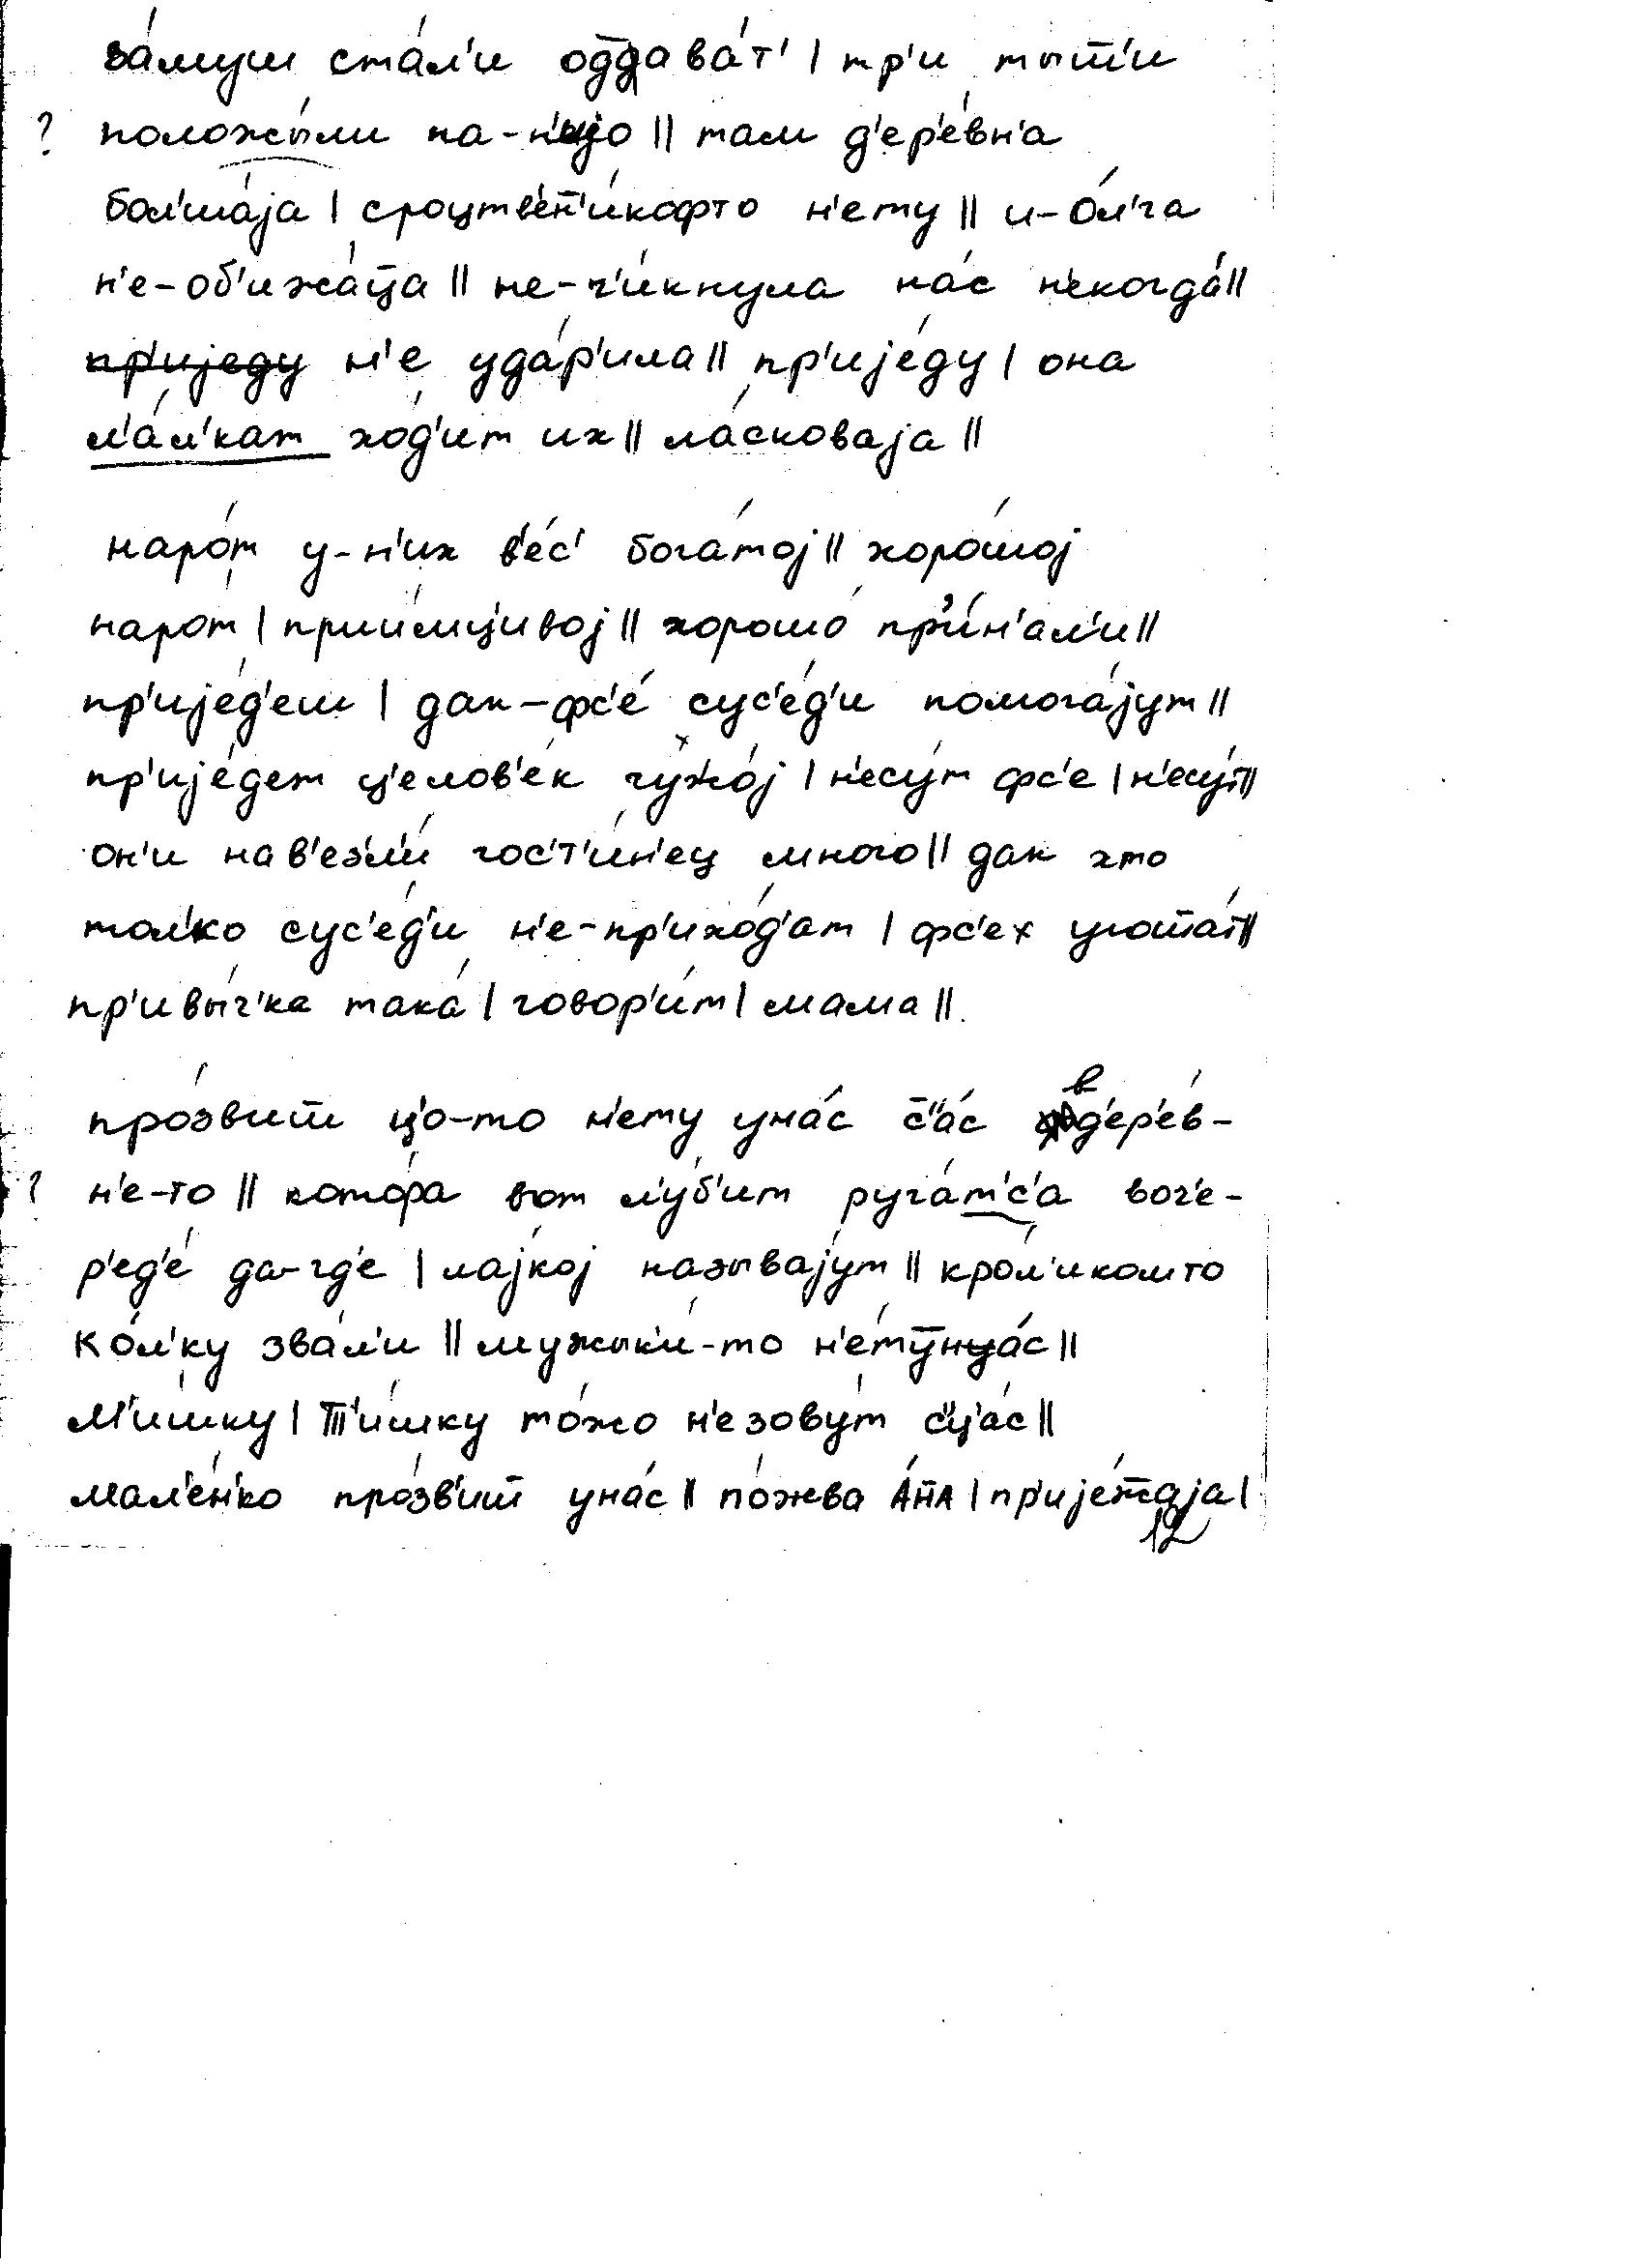 за́муш ста́л'и од̅дава́т' | тр'и тыш̅'и
? положы́ли на-н'ијо || там д'ер'е́вн'а
бол'ша́ја | сроцтве́н̅'икофто н'ету || и-О́л'га
н'е-об'ижа́ц̅а || не-ч'и́кнула на́с н'екогда́ ||
пр'иједу н'е уда́р'ила || пр'ије́ду | она
л'а́л'кат хо́д'ит их || ла́сковаја ||
наро́т у-н'их в'е́с' бога́тој || хоро́шој
наро́т | прии́мц'ивој || хорошо́ пр'и́н'ал'и ||
пр'ије́д'еш | дак-фс'е́ сус'е́д'и помога́јут ||
пр'ије́дет ц'елов'е́к чужо́ј | н'есу́т фс'е | н'есу́т ||
он'и нав'езл'и́ гос'т'и́н'ец много || дак хто
тол'ко сус'е́д'и н'е-пр'ихо́д'ат | фс'ех угош̅а́т ||
пр'ивы́ч'ка така́ | говор'и́т | мама ||
про́звиш̅ ц'о-то н'ету уна́с с̅'а́с в д'ер'е́в-
? н'е-то || кото́ра вот л'у́б'ит руга́т'с'а воч'е-
р'ед'е́ да-гд'е | ла́јкој называ́јут || кро́л'иком то
Ко́л'ку зва́л'и || мужык'и́-то н'е́ту уна́с ||
М'и́шку | Т̅'и́шку то́жо н'езову́т с'ц'а́с ||
мал'е́н'ко про́зв'иш̅ уна́с || по́жва А́н̅а | пр'ије́ж̅аја |
12